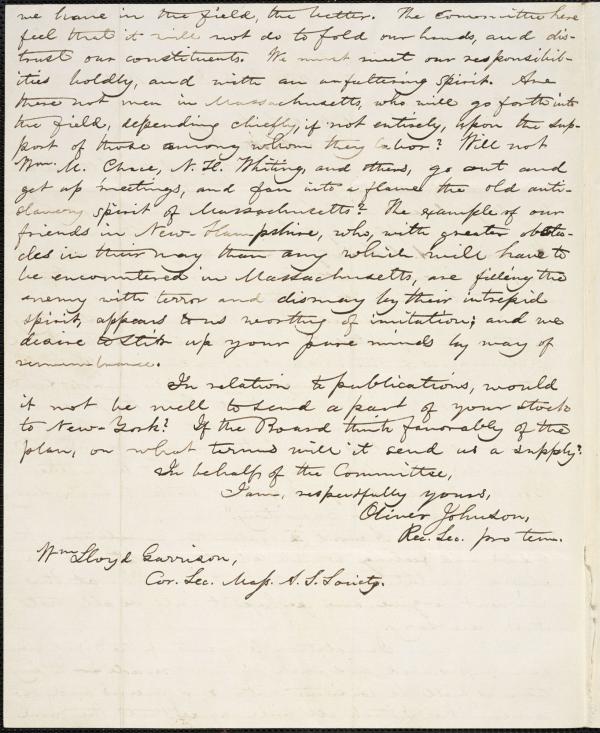 we have in the field, the better. The Committee here
feel that it will not do to fold our hands, and dis-
trust our constituents. We must meet our responsibil-
ities boldly, and with an unfaltering spirit. Are
there not men in Massachusetts, who will go forth into
the field, depending chiefly, if not entirely, upon the sup-
port of those among whom they labor? Will not
Wm. M. Chace, N. H. Whiting, and others, go out and
get up meetings, and fan into a flame the old anti-
slavery spirit of Massachusetts? The example of our
friends in New-Hampshire, who, with greater obsta-
cles in their way than any which will have to
be encountered in Massachusetts, are filling the
enemy with terror and dismay by their intrepid
spirit, appears to us worthy of imitation; and we
desire to stir up your pure minds by way of
remembrance.
In relation to publications, would
it not be well to send a part of your stock
to New-York? If the Board think favorably of the
plan, on what terms will it send us a supply?
In behalf of the Committee,
I am, respectfully yours,
Oliver Johnson,
Rec. Sec. pro tem.
Wm Lloyd Garrison,
Cor. Sec. Mass. A. S. Society.